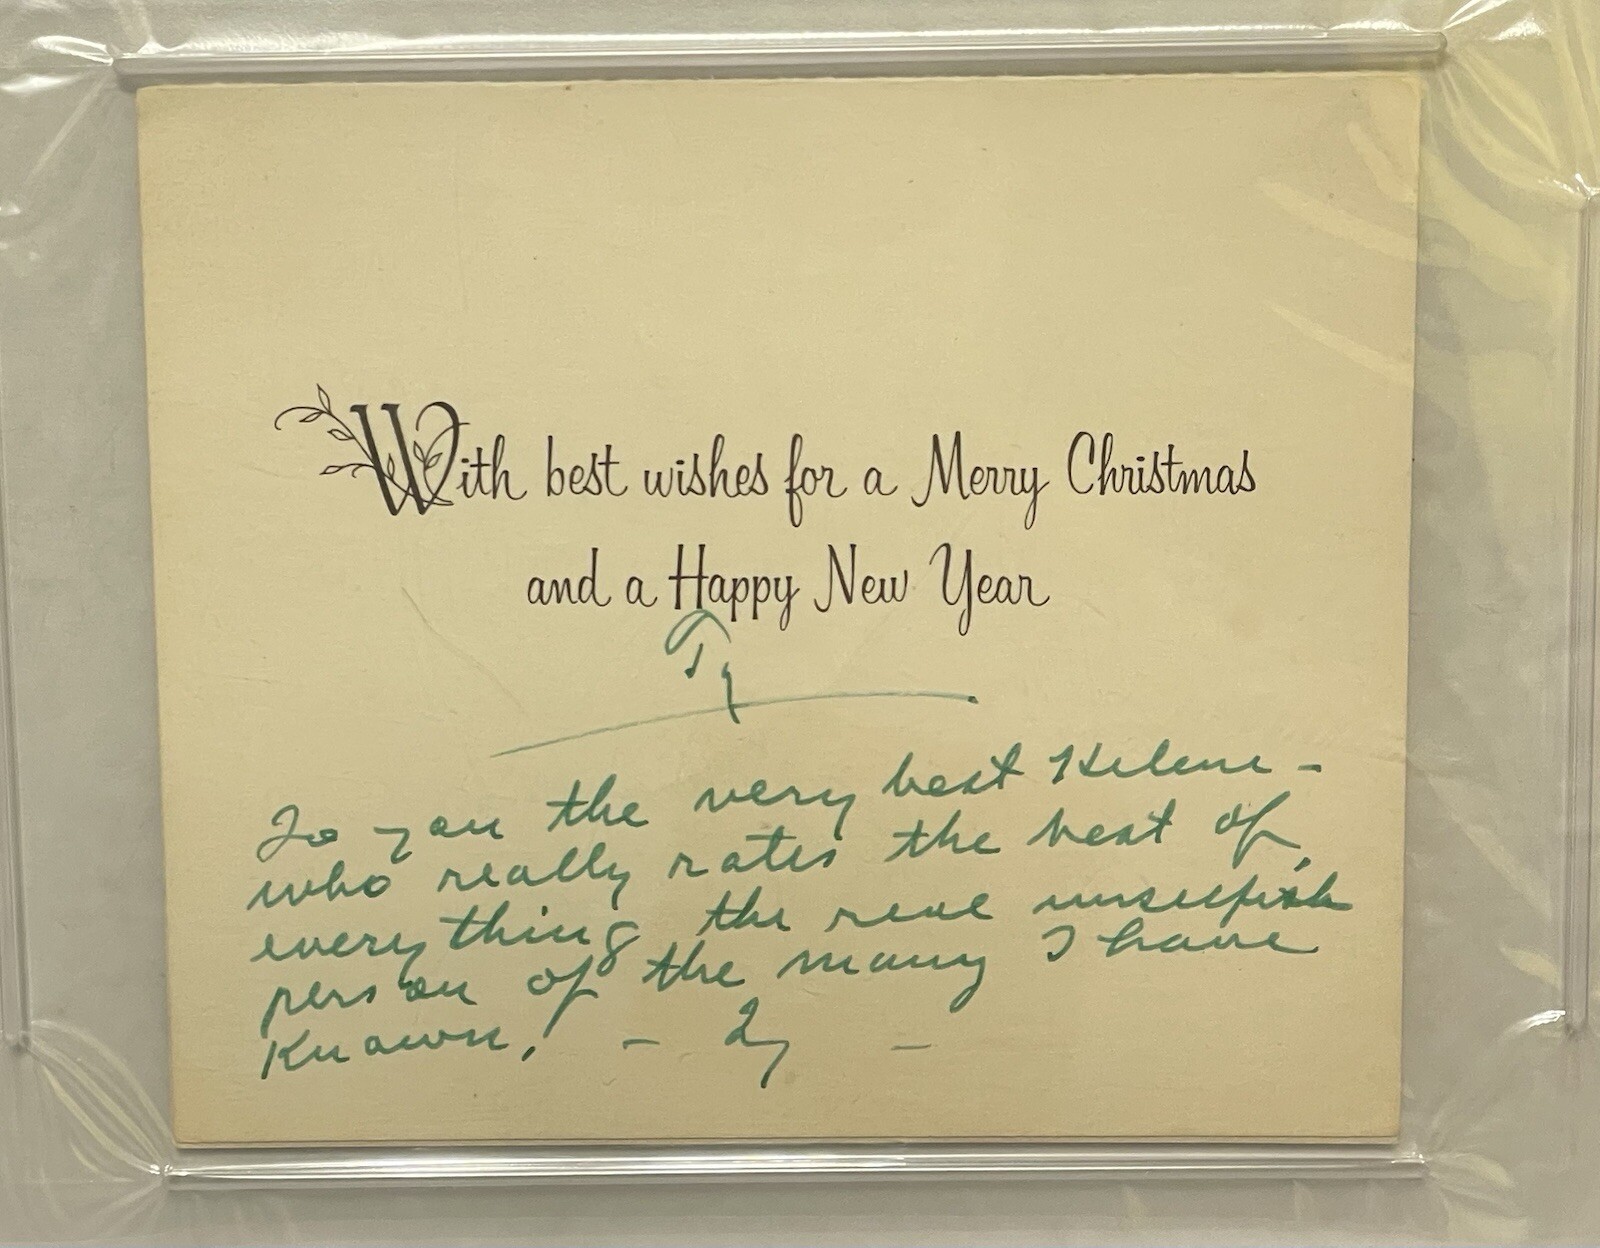 With best wishes for a Merry Christmas
and a Happy New Year
Ty
To you the very best Helene -
who really rates the best of
everything the real unselfish
person of the many I have
Known! - Ty -